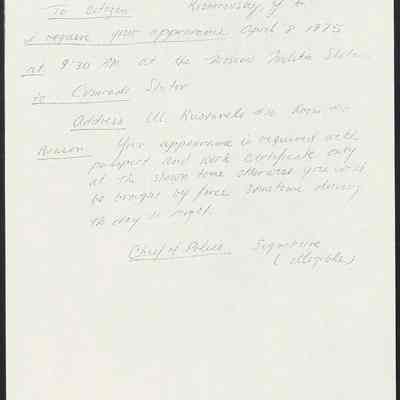 To Citizen
I require your appearance April 8 1975
at 9:30 AM at the Moscow Militia Station
to Comrade
Address Ul.
Reason Your appearance is required with
passport and work certificate only
at the shown time otherwise you will
be brought by force sometime during
th day or night.
Chief of Police Signature
(illegible)